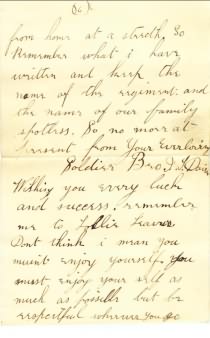 from home at a stretch. So
Remember what i have
written and keep the
name of the regiment and
the name of our family
spotless. So no more at
present from Your Ever loving
Soldier Bro
Wishing you every luck
and success. remember
me to Lollie
Dont think i mean you
musnt enjoy yourself you
must enjoy your self as
much as possible but be
respectful wherever you go